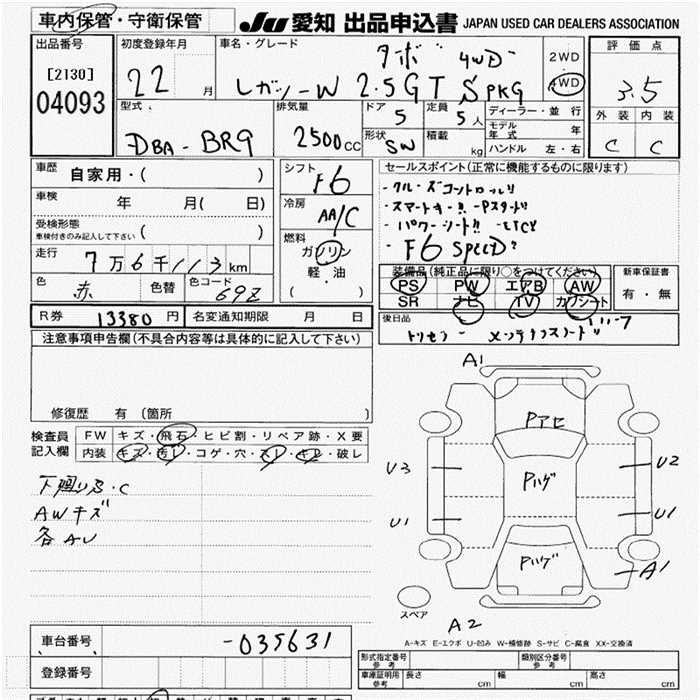 車内保管・守衛保管
JU 愛知 出品申込書 JAPAN USED CAR DEALERS ASSOCIATION
出品番号
[2130]
04093
初度登録年月
22 月
車名・グレード
ターボ 4WD
レガシィW 2.5GT SPKG
2WD
4WD
評価点
3.5
外装 内装
C C
型式
DBA-BR9
排気量
2500cc
ドア
5
定員
5人
形状
SW
積載
kg
ディーラー・並行
モデル年式 年
ハンドル 左・右
車歴
自家用・( )
車検
年 月( 日)
受検形態
車検付きのみ記入して下さい ( )
走行
7万6千113km
色
赤
色替
色コード
69Z
シフト
F6
冷房
AA/C
燃料
ガソリン
軽・油
( )
セールスポイント(正常に機能するものに限ります)
・クルーズコントロール
・スマートキー!! -Pスタート
・パワーシート!! -ETC
・F6 SPEED
装備品(純正品に限り○をつけてください)
PS PW エアB AW
SR ナビ TV カワシート
新車保証書
有・無
R券 13380円
名変通知期限 月 日
後日品
トリセツ メンテナンスノート
注意事項申告欄(不具合内容等は具体的に記入して下さい)
修復歴 有 (箇所 )
検査員記入欄
FW キズ・飛石・ヒビ割・リペア跡・X要
内装 キズ・汚レ・コゲ・穴・スレ・キレ・破レ
下廻りS・C
AWキズ
各AU
A1
Pアセ
U3
U2
Pハゲ
U1
U1
Pハゲ
A1
スペア
A2
A-キズ E-エクボ U-凹み W-補修跡 S-サビ C-腐食 XX-交換済
車台番号 -035631
登録番号
形式指定番号 参考
類別区分番号 参考
車庫証明用 参考 長さ cm 幅 cm 高さ cm